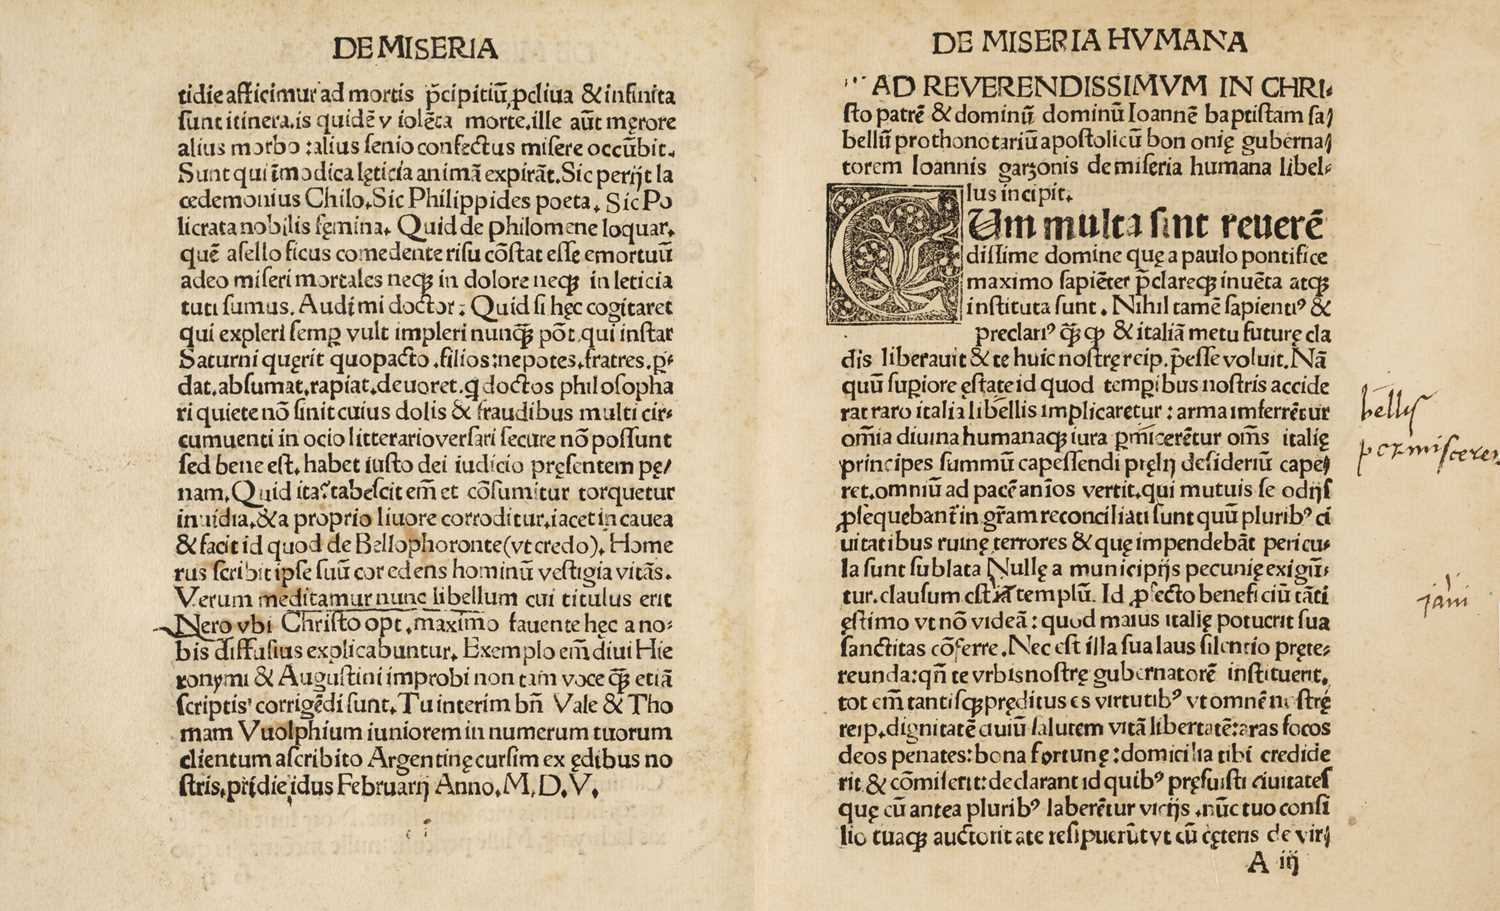 DE MISERIA
tidie afficimur ad mortis p̄cipitiū, ꝓcliua & infinita
sunt itinera. is quidē violēta morte. ille aūt męrore
alius morbo : alius senio confectus misere occūbit.
Sunt qui īmodica lęticia animā expirāt. Sic perijt la
cedemonius Chilo. Sic Philippides poeta. Sic Po
licrata nobilis fęmina. Quid de philomene loquar.
quē asello ficus comedente risu cōstat esse emortuū
adeo miseri mortales neqꝫ in dolore neqꝫ in leticia
tuti sumus. Audi mi doctor : Quid si hęc cogitaret
qui expleri semꝑ vult impleri nunqꝫ pōt. qui instar
Saturni quęrit quo pacto. filios : nepotes. fratres. ꝑ
dat. absumat. rapiat. deuoret. q doctos philosopha
ri quiete nō sinit cuius dolis & fraudibus multi cir
cumuenti in ocio litterario versari secure nō possunt
sed bene est. habet iusto dei iudicio pręsentem pę/
nam. Quid ita? tabescit em̄ et cōsumitur torquetur
inuidia. & a proprio liuore corroditur. iacet in cauea
& facit id quod de Bellophoronte (vt credo). Home
rus scribit ipse suū cor edens hominū vestigia vitās.
Verum meditamur nunc libellum cui titulus erit
Nero vbi Christo opt. maximo fauente hęc a no-
bis diffusius explicabuntur. Exemplo em̄ diui Hie
ronymi & Augustini improbi non tam voce qꝫ etiā
scriptis corrigēdi sunt. Tu interim bn̄ Vale & Tho
mam Vuolphium iuniorem in numerum tuorum
clientum ascribito Argentinę cursim ex ędibus no
stris. pridie idus Februarij Anno. M. D. V.
DE MISERIA HVMANA
AD REVERENDISSIMVM IN CHRI-
sto patrē & dominū dominū Ioannē baptistam sa/
bellū prothonotariū apostolicū bononię guberna/
torem Ioannis garzonis de miseria humana libel-
lus incipit.
CUm multa sint reuerē
dissime domine quę a paulo pontifice
maximo sapiēter p̄clareqꝫ inuēta atqꝫ
instituta sunt. Nihil tamē sapientiꝰ &
preclariꝰ qꝫ ꝙ & italiā metu future cla
dis liberauit & te huic nostrę reip. p̄esse voluit. Nā
quū supiore ęstate id quod tempibus nostris accide
rat raro italia libellis implicaretur : arma imferrētur
omīa diuina humanaqꝫ iura pmicerētur om̄s italię
principes summū capessendi pręlij desideriū cape/
ret. omniū ad pacē anīos vertit. qui mutuis se odijs
ꝓsequebant̄ in gr̄am reconciliati sunt quū pluribꝰ ci
uitatibus ruinę terrores & quę impendebāt pericu-
la sunt sublata Nullę a municipijs pecunię exigūt-
tur. clausum est templū. Id ꝓfecto beneficiū tāti
ęstimo vt nō videā : quod maius italię potuerit sua
sanctitas cōferre. Nec est illa sua laus silentio pręte-
reunda : qn̄ te vrbis nostrę gubernatorē instituerit.
tot em̄ tantisqꝫ pręditus es virtutibꝰ vt omnē nostrę
reip. dignitatē ciuiū salutem vitā libertatē : aras focos
deos penates : bona fortunę : domicilia tibi credide
rit & cōmiserit : declarant id quibꝰ pręfuisti ciuitates
quę cū antea pluribꝰ laberētur vicijs. nūc tuo consi
lio tuaqꝫ auctoritate resipuerūt vt cū cęteris de vir/
A iij
bellis
permiscere
jani